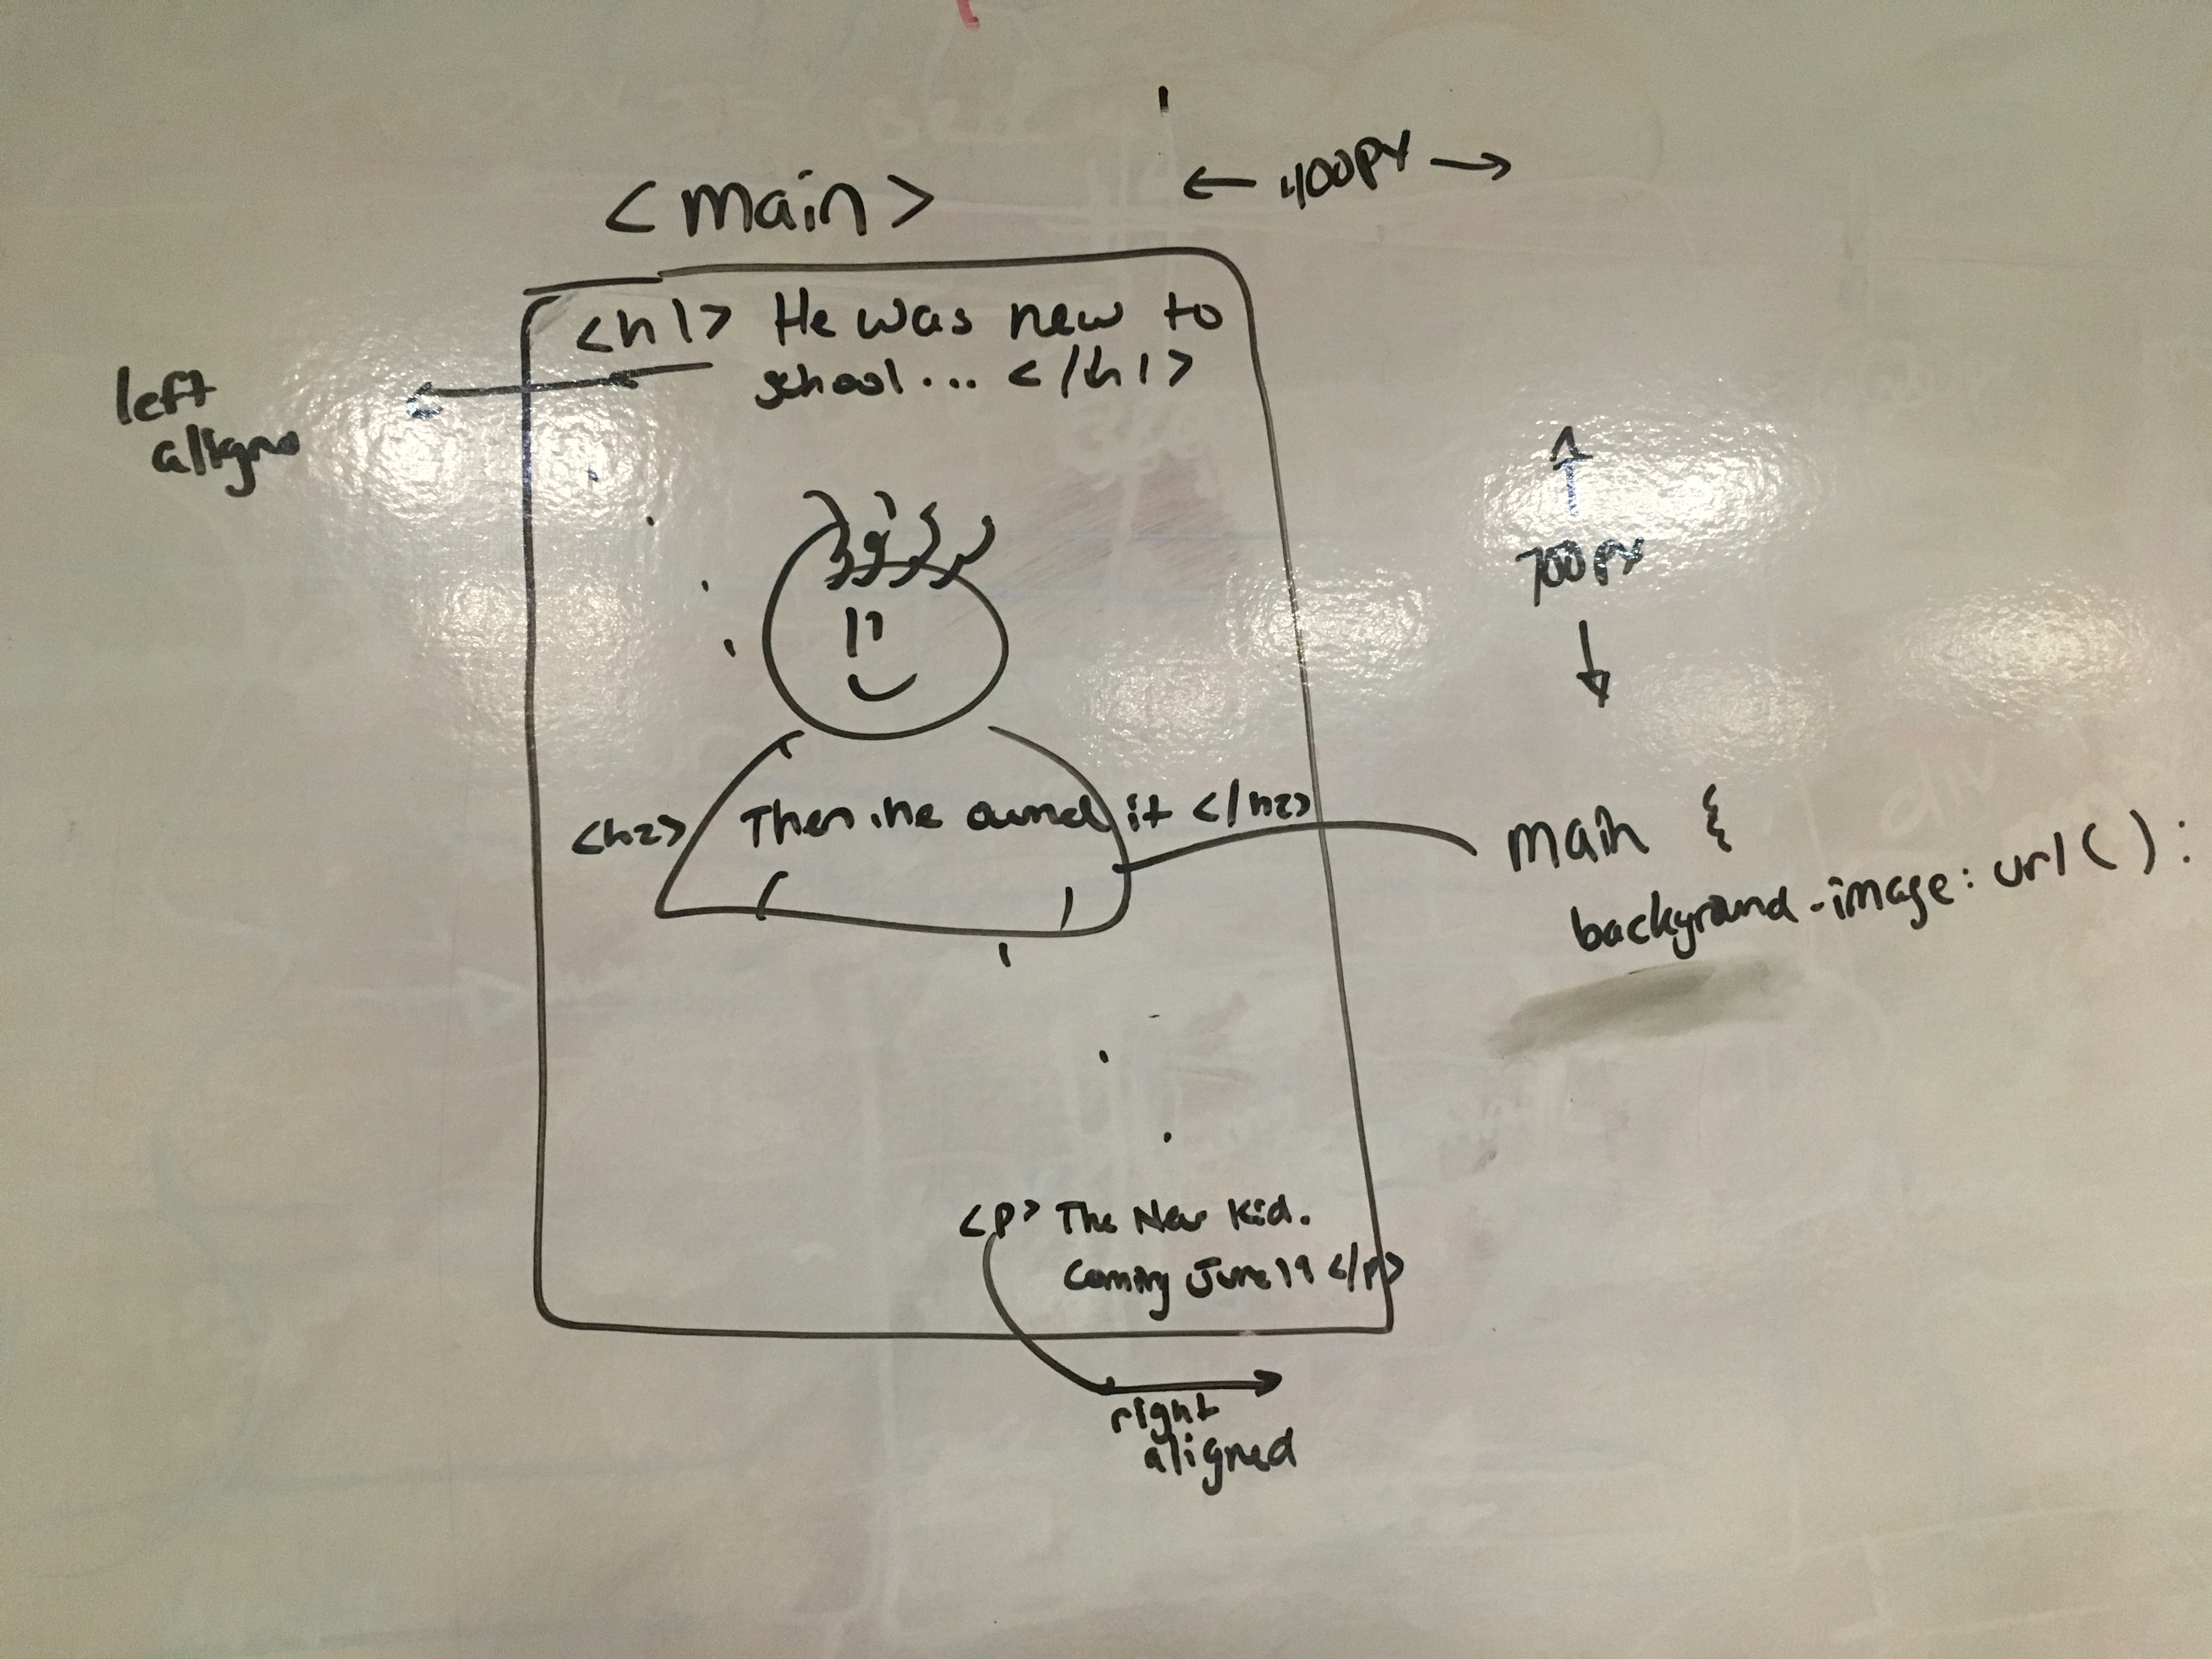 <main>
← 400px →
<h1> He was new to
school... </h1>
left
aligns
700px
<h2> Then he owned it </h2>
main {
background-image: url( ):
<p> The New Kid.
Coming June 19 </p>
right
aligned